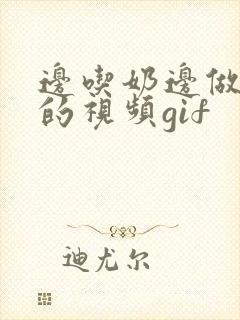 邊喫奶邊做
的視頻gif
迪尤尔